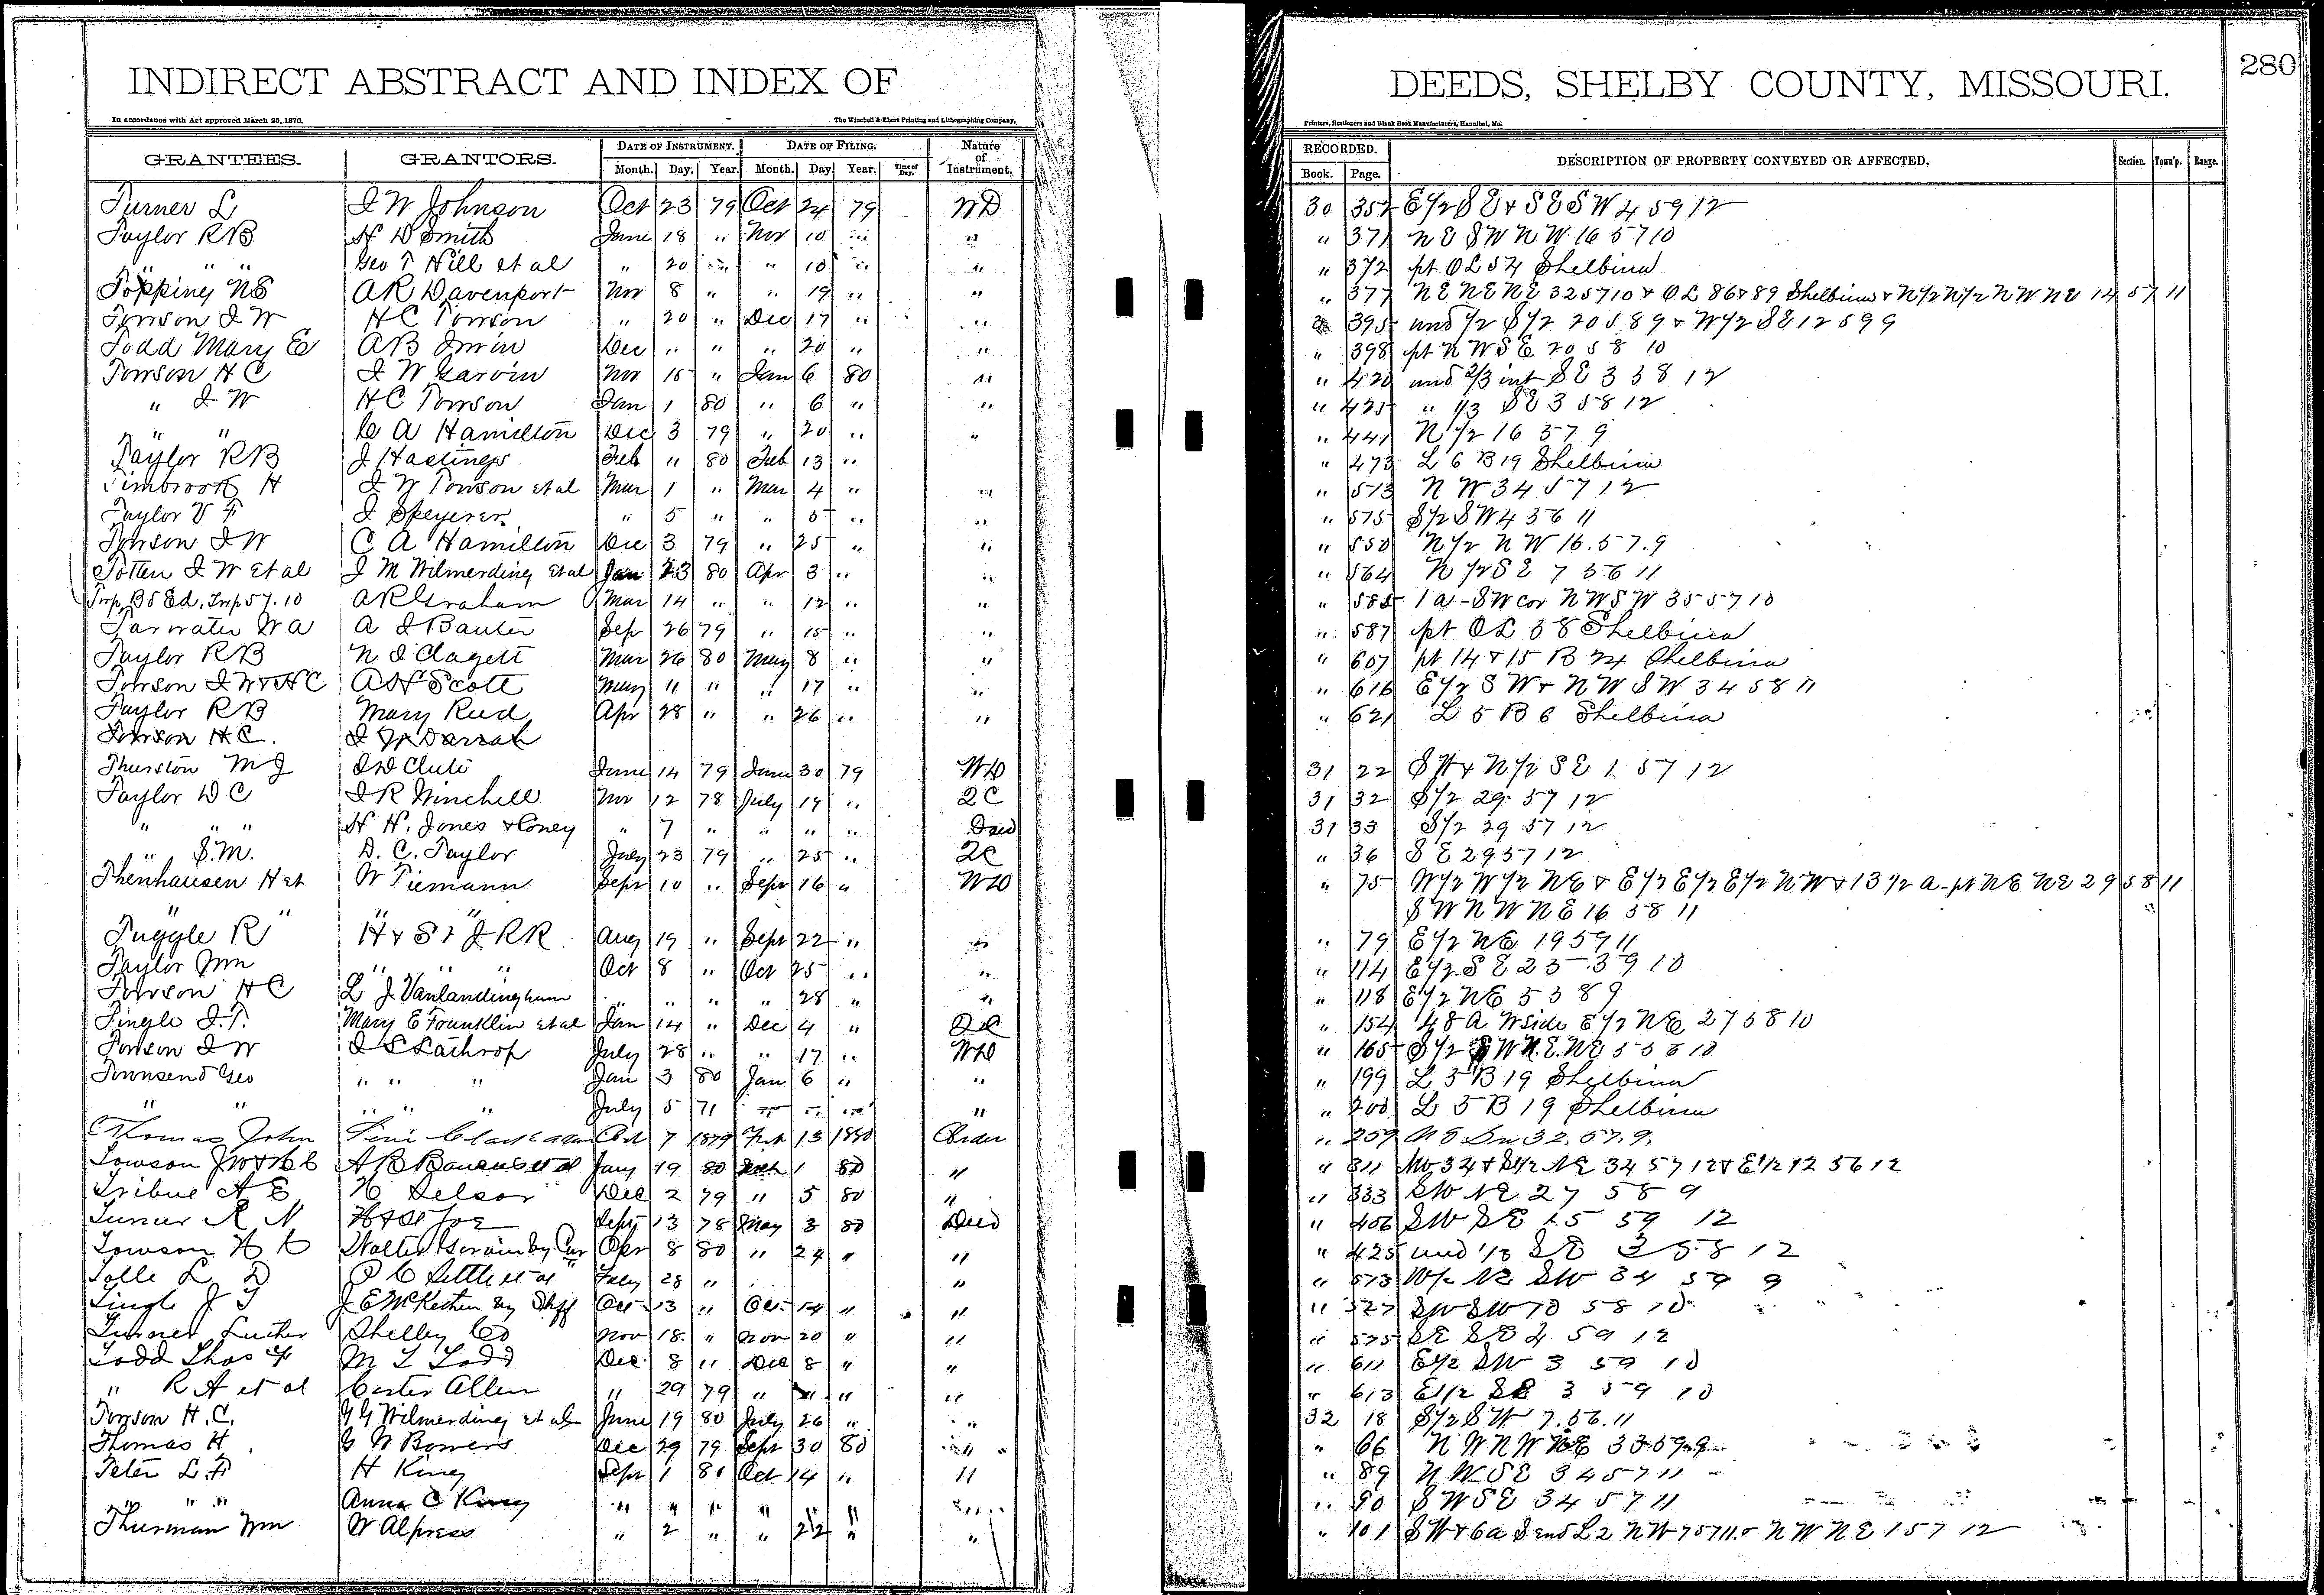 INDIRECT ABSTRACT AND INDEX OF DEEDS, SHELBY COUNTY, MISSOURI. 280
In accordance with Act approved March 25, 1870. The Winchell & Ebert Printing and Lithographing Company, Printers, Stationers and Blank Book Manufacturers, Hannibal, Mo.
GRANTEES. GRANTORS. DATE OF INSTRUMENT. DATE OF FILING. Nature of Instrument. RECORDED. DESCRIPTION OF PROPERTY CONVEYED OR AFFECTED. Section. Town'p. Range.
Month. Day. Year. Month. Day Year. Time of Day. Book. Page.
Turner L I W Johnson Oct 23 79 Oct 24 79 WD 30 352 E 1/2 S E & S E S W 4 59 12
Taylor RB H D Smith June 18 " Nov 10 " " " 371 N E S W N W 16 57 10
" " " Geo T Hill et al " 20 " " 10 " " " 372 pt OL 54 Shelbina
Topping NS AR Davenport Nov 8 " " 19 " " " 377 N E N E N E 32 57 10 & OL 86 & 89 Shelbina & N 1/2 N 1/2 N W N E 14 57 11
Towson I W HC Towson " 20 " Dec 17 " " 395 und 1/2 S 1/2 20 58 9 & W 1/2 SE 12 59 9
Todd Mary E AB Irwin Dec " " " 20 " " " 398 pt N W S E 20 58 10
Towson H C I W Garvin Nov 15 " Jan 6 80 " " 420 und 2/3 int S E 3 58 12
" I W HC Towson Jan 1 80 " 6 " " " 425 " 1/3 S E 3 58 12
" " C A Hamilton Dec 3 79 " 20 " " " 441 N 1/2 16 57 9
Taylor RB J Hastings Feb 11 80 Feb 13 " " 473 L 6 B 19 Shelbina
Timbrook H I W Towson et al Mar 1 " Mar 4 " " " 513 N W 34 57 12
Taylor V F I Speyerer " 5 " " 5 " " " 515 S 1/2 S W 4 56 11
Towson I W C A Hamilton Dec 3 79 " 25 " " " 550 N 1/2 N W 16.57.9
Totten I W et al J M Wilmerding et al Jan 23 80 Apr 3 " " " 564 N 1/2 S E 7 56 11
Twp Bd Ed. Twp 57.10 AR Graham Mar 14 " " 12 " " " 585 1 a - SW cor N W S W 35 57 10
Tarwater W A A J Bauter Sep 26 79 " 15 " " " 587 pt OL 38 Shelbina
Taylor RB N I Clagett Mar 26 80 May 8 " " " 607 pt 14 & 15 B 24 Shelbina
Towson I W & H C A H Scott May 11 " " 17 " " " 616 E 1/2 S W & N W S W 34 58 11
Taylor RB Mary Reed Apr 28 " " 26 " " " 621 L 5 B 6 Shelbina
Towson H C.
Thurston M J June 14 79 June 30 79 WD 31 22 S W & N 1/2 S E 1 57 12
Taylor D C I R Winchell Nov 12 78 July 19 " QC 31 32 S 1/2 29 57 12
" " " H H. Jones " 7 " " " " Deed 31 33 S 1/2 29 57 12
" S.M. D. C. Taylor July 23 79 " 25 " QC " 36 S E 29 57 12
Thenhausen H et W Tiemann Sepr 10 " Sepr 16 " WD " 75 W 1/2 W 1/2 NE & E 1/2 E 1/2 E 1/2 N W & 13 1/2 a - pt N E N E 29 58 11
S W N W N E 16 58 11
Tuggle R H & St J RR Aug 19 " Sept 22 " " " 79 E 1/2 NE 19 59 11
Taylor Wm " " " Oct 8 " Oct 25 " " " 114 E 1/2 S E 23 59 10
Towson H C L J Vanlandingham " " " " 28 " " " 118 E 1/2 NE 5 58 9
Tingle I.T. Mary E Franklin et al Jan 14 " Dec 4 " QC " 154 48 A W side E 1/2 NE 27 58 10
Towson I W I S Lathrop July 28 " " 17 " WD " 165 S 1/2
Townsend Geo " " " Jan 3 80 Jan 6 " " " 199 L 5 B 19 Shelbina
" " " " " July 5 71 " " " " " 200 L 5 B 19 Shelbina
Thomas John Oct 7 1879 Feb 13 1880 Order " 209 32. 57. 9.
Towson Jany 19 80 Mch 1 80 " " 311 34 57 12 & E 1/2 12 56 12
Tribue A E Dec 2 79 " 5 80 " " 333 SW NE 27 58 9
Turner R N H & St Joe Sept 13 78 May 3 80 Deed " 406 SW SE 15 59 12
Towson H C Apr 8 80 " 24 " " " 425 und 1/3 SE 3 58 12
Tolle L D July 28 " " " 513 SW 34 59 9
Tingle J T J E McKethen by Shff Oct 13 " Oct 14 " " " 527 SW SW 10 58 10
Turner Luther Shelby Co Nov 18 " Nov 20 " " " 575 SE SE 4 59 12
Todd Thos M L Todd Dec 8 " Dec 8 " " " 611 E 1/2 SW 3 59 10
" R A et al Carter Allen " 29 79 " " " " " 613 E 1/2 SE 3 59 10
Towson H.C. G G Wilmerding et al June 19 80 July 26 " " 32 18 S 1/2 S W 7.56.11
Thomas H G W Bowers Dec 29 79 Sept 30 80 " " 66 N W N W NE 33 59 9
Teter L.F H King Sept 1 80 Oct 14 " " " 89 N W S E 34 57 11
" " " Anna C King " " " " " " " " 90 S W S E 34 57 11
Thurman Wm W Alpress " 2 " " 22 " " " 101 S W & 6 a S end L 2 N W 7 57 11 & N W N E 1 57 12